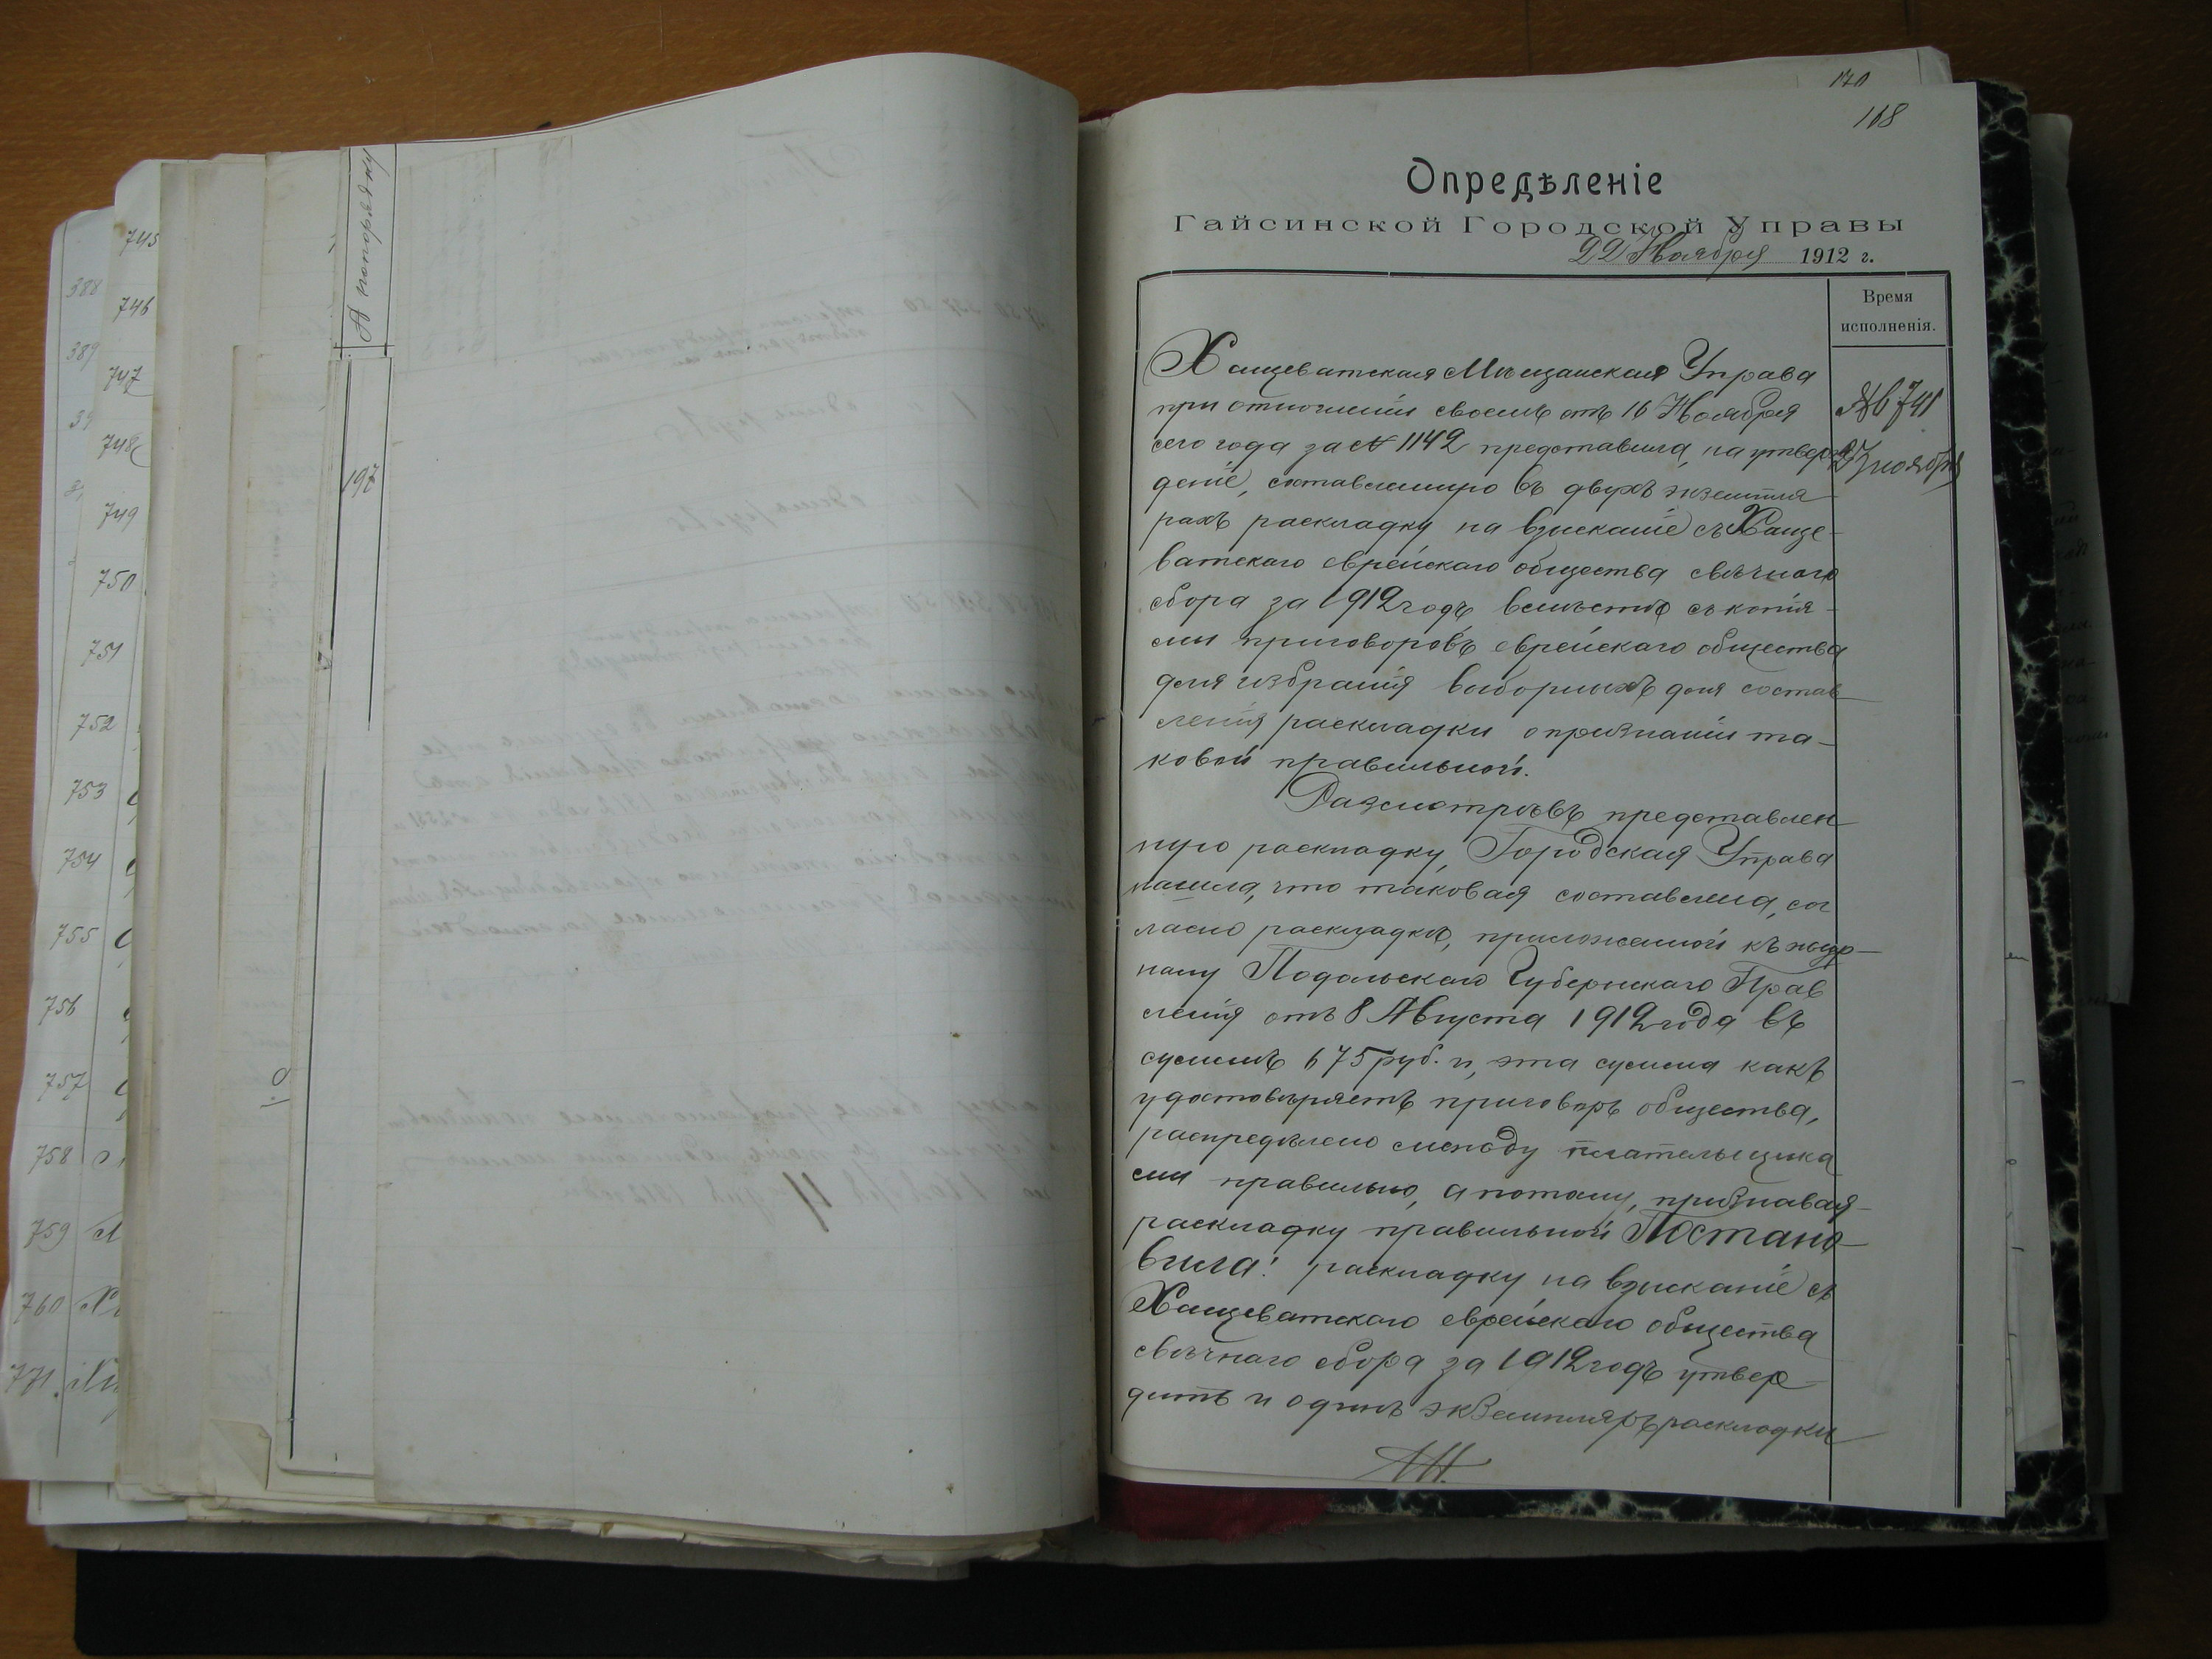 170
168
Опредѣленіе
Гайсинской Городской Управы
22 Ноября 1912 г.
Время
исполненія.
№ 6741
27 ноября
Хащеватская Мѣщанская Управа
при отношеніи своемъ отъ 16 Ноября
сего года за № 1142 представила, на утверж-
деніе, составленную въ двухъ экземпля-
рахъ раскладку на взысканіе съ Хаще-
ватскаго еврейскаго общества свѣчного
сбора за 1912 годъ вмѣстѣ съ копія-
ми приговоровъ еврейскаго общества
для избранія выборныхъ для состав-
ленія раскладки о признаніи та-
ковой правильной.
Разсмотрѣвъ представлен-
ную раскладку, Городская Управа
нашла, что таковая составлена, сог
ласно раскладкѣ, приложенной къ жур-
налу Подольскаго Губернскаго Прав
ленія отъ 8 Августа 1912 года въ
суммѣ 675 руб. и, эта сумма какъ
удостовѣряетъ приговоръ общества,
распредѣлено между плательщика
ми правильно, а потому, признавая
раскладку правильной Постано-
вила: раскладку на взысканіе съ
Хащеватскаго еврейскаго общества
свѣчнаго сбора за 1912 годъ утвер-
дить и одинъ экземпляръ раскладки
197
745
746
747
748
749
750
751
752
753
754
755
756
757
758
759
760
771.
388
389